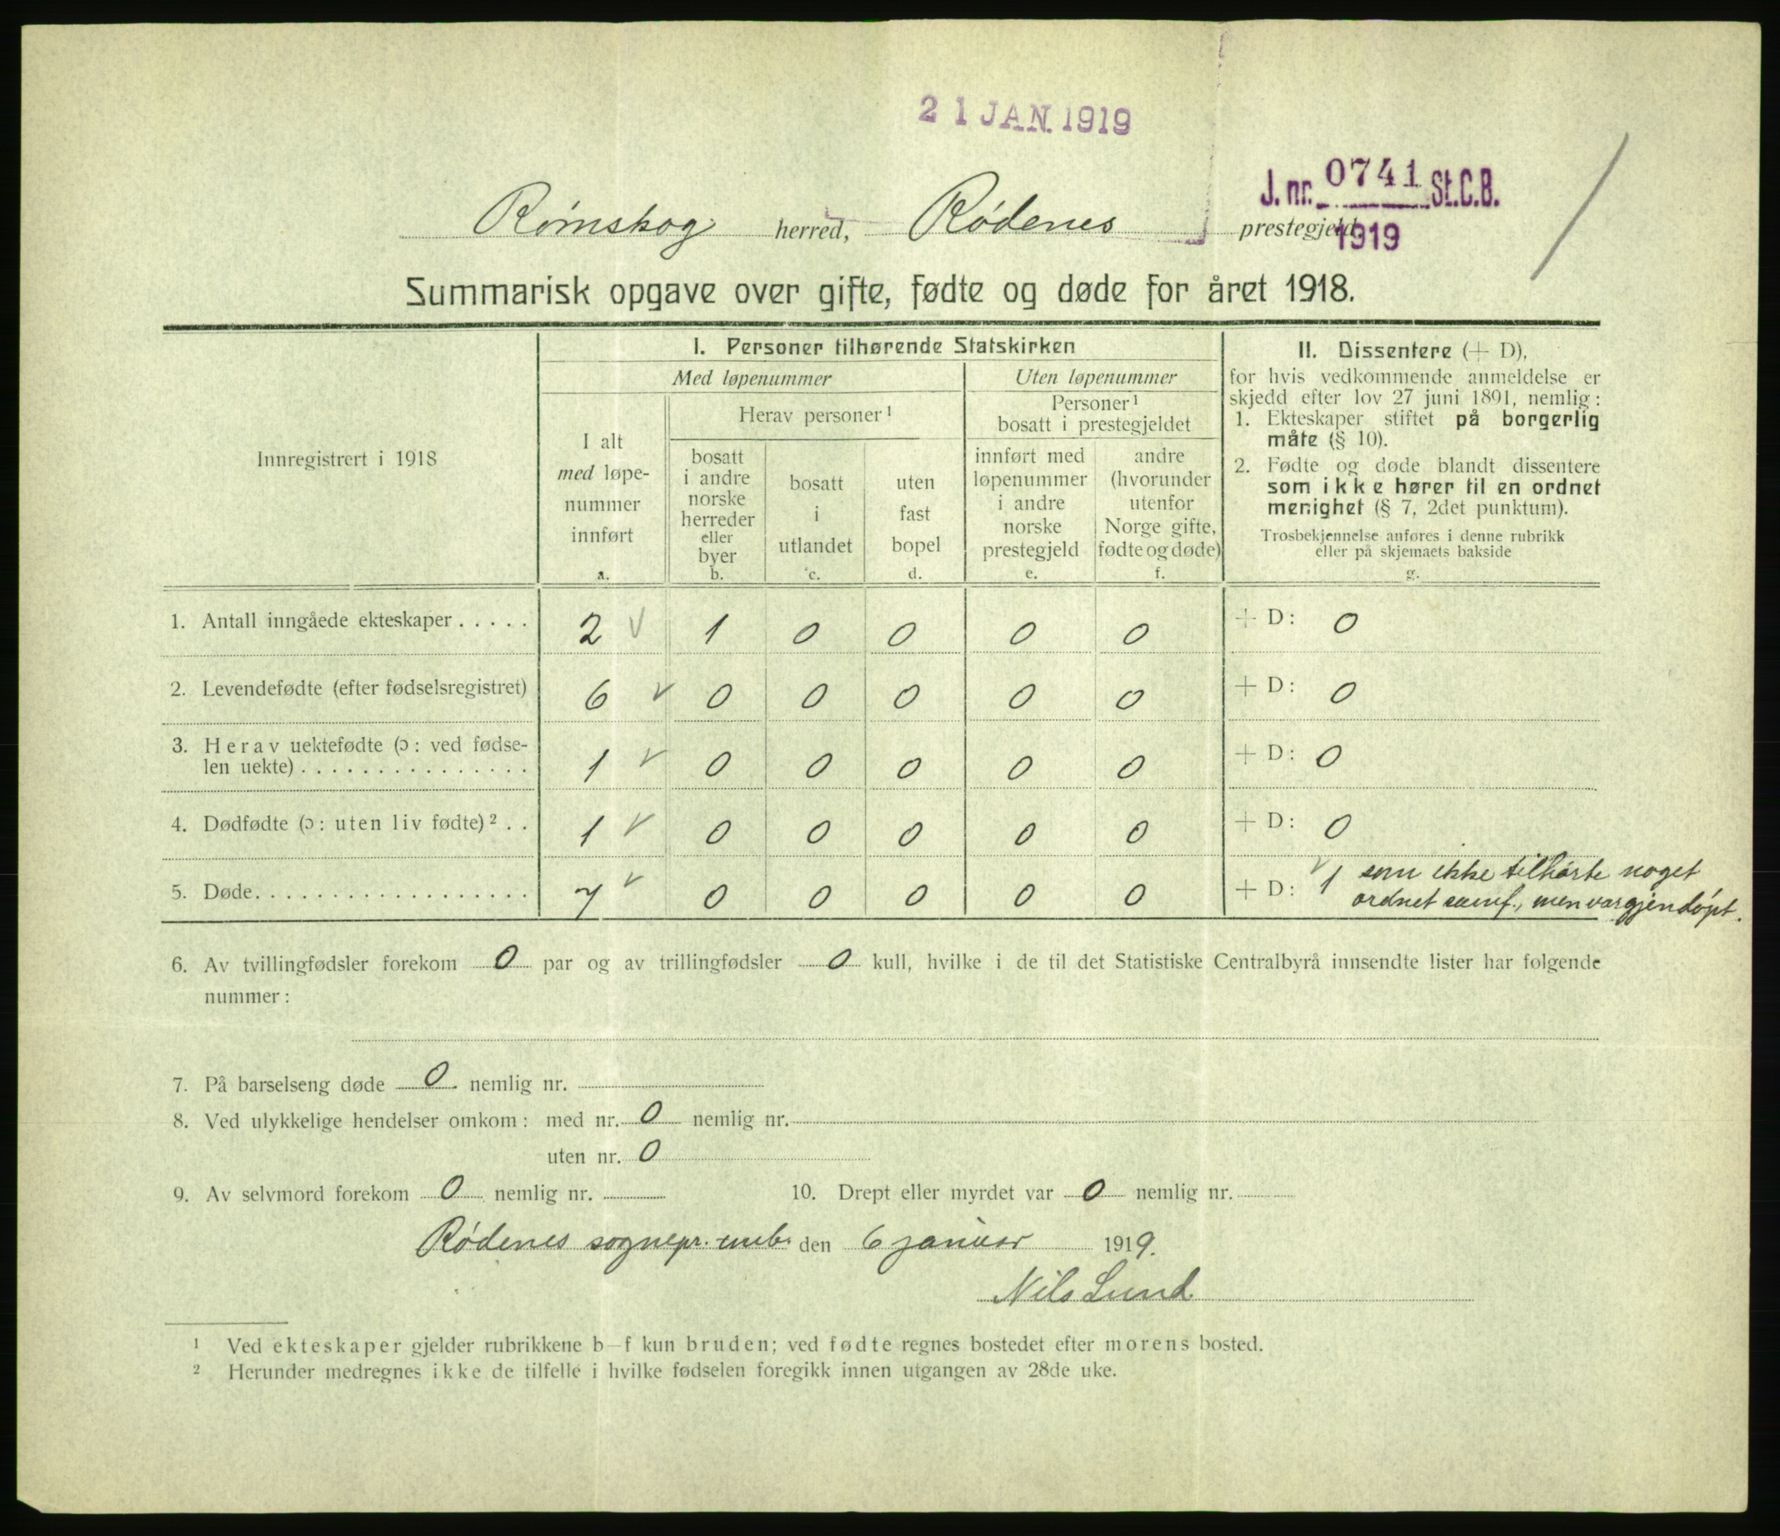 21 JAN. 1919
J. nr. 0741 St.C.B.
1919
Rømskog herred, Rödenes prestegjeld.
Summarisk opgave over gifte, fødte og døde for året 1918.
Innregistrert i 1918
I. Personer tilhørende Statskirken
Med løpenummer
Uten løpenummer
I alt
med løpe-
nummer
innført
a.
Herav personer ¹
bosatt
i andre
norske
herreder
eller
byer
b.
bosatt
i
utlandet
c.
uten
fast
bopel
d.
Personer ¹
bosatt i prestegjeldet
innført med
løpenummer
i andre
norske
prestegjeld
e.
andre
(hvorunder
utenfor
Norge gifte,
fødte og døde)
f.
II. Dissentere (+ D),
for hvis vedkommende anmeldelse er
skjedd efter lov 27 juni 1891, nemlig:
1. Ekteskaper stiftet på borgerlig
måte (§ 10).
2. Fødte og døde blandt dissentere
som ikke hører til en ordnet
menighet (§ 7, 2det punktum).
Trosbekjennelse anføres i denne rubrikk
eller på skjemaets bakside
g.
1. Antall inngåede ekteskaper . . . . . 2 √ 1 0 0 0 0 + D: 0
2. Levendefødte (efter fødselsregistret) 6 √ 0 0 0 0 0 + D: 0
3. Herav uektefødte (ɔ: ved fødse-
len uekte) . . . . . . . . . . . . . . . 1 √ 0 0 0 0 0 + D: 0
4. Dødfødte (ɔ: uten liv fødte) ² . . 1 √ 0 0 0 0 0 + D: 0
5. Døde. . . . . . . . . . . . . . . . . . 7 √ 0 0 0 0 0 + D: √ 1 som ikke tilhørte noget
ordnet samf., men var gjendøpt.
6. Av tvillingfødsler forekom 0 par og av trillingfødsler 0 kull, hvilke i de til det Statistiske Centralbyrå innsendte lister har følgende
nummer:
7. På barselseng døde 0 nemlig nr.
8. Ved ulykkelige hendelser omkom: med nr. 0 nemlig nr.
uten nr. 0
9. Av selvmord forekom 0 nemlig nr. 10. Drept eller myrdet var 0 nemlig nr.
Rödenes sognepr. emb. den 6 januar 1919.
Nils Lund
¹ Ved ekteskaper gjelder rubrikkene b—f kun bruden; ved fødte regnes bostedet efter morens bosted.
² Herunder medregnes ikke de tilfelle i hvilke fødselen foregikk innen utgangen av 28de uke.